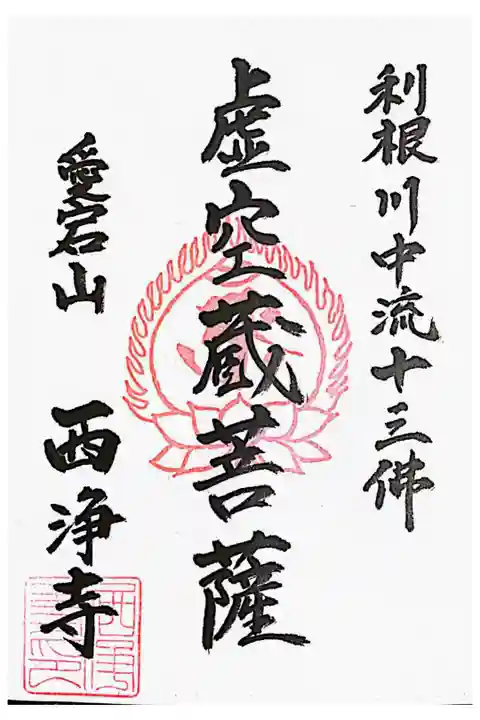 利根川中流十三佛
虚空蔵菩薩
愛宕山 西浄寺